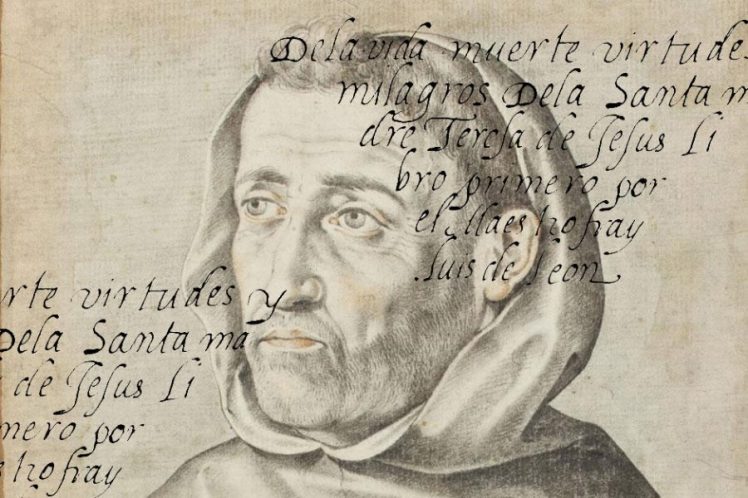 Dela vida muerte virtudes
milagros Dela Santa m
dre Teresa de Jesus Li
bro primero por
el Maestro fray
luis de Leon
rte virtudes y
Dela Santa ma
de Jesus Li
mero por
stro fray